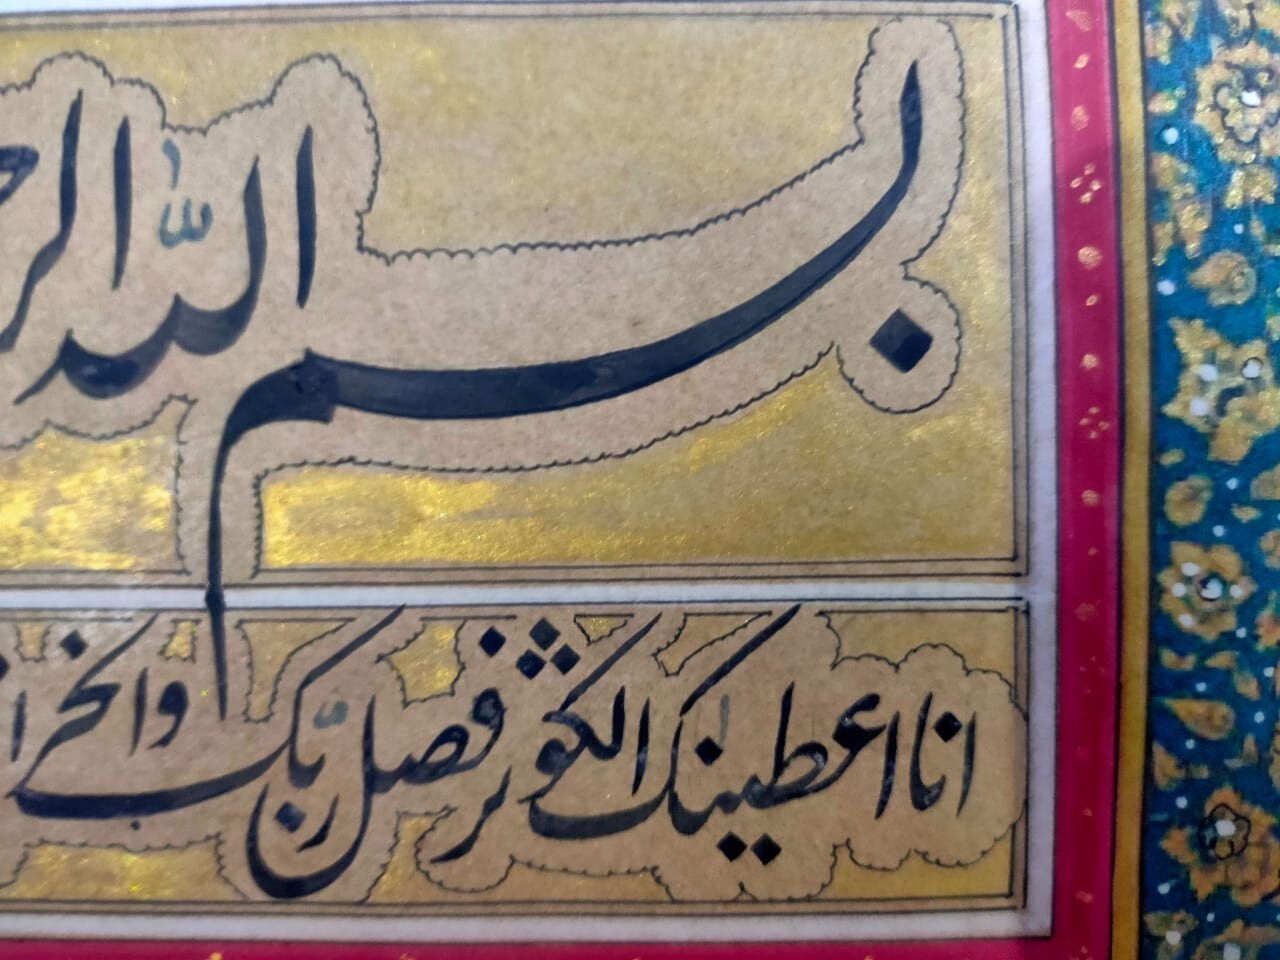 بسم الله الر
انا اعطینک الکوثر فصل لربک وانحر ا